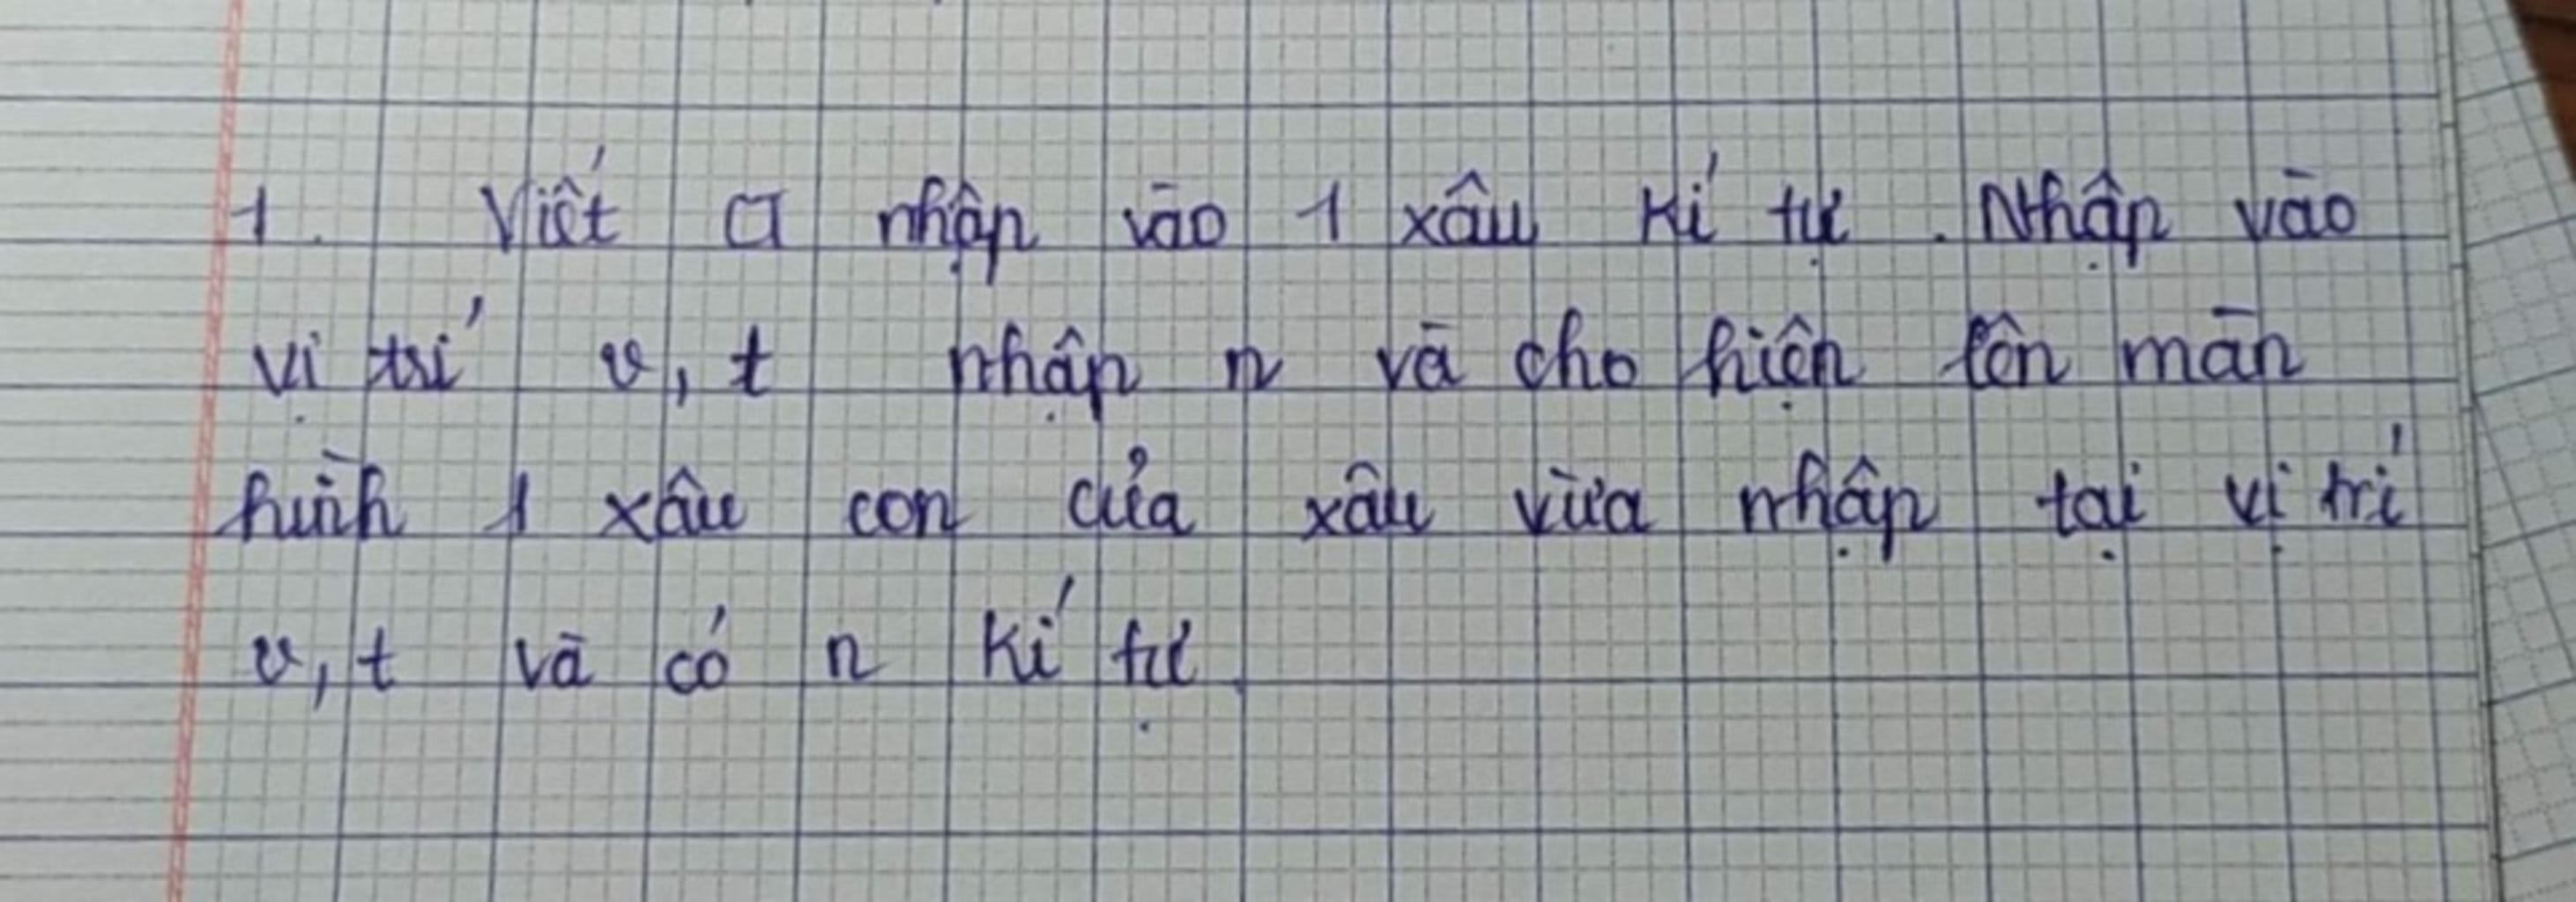 1. Viết CT nhập vào 1 xâu kí tự. Nhập vào
vị trí v, t nhập n và cho hiện lên màn
hình 1 xâu con của xâu vừa nhập tại vị trí
v, t và có n kí tự.